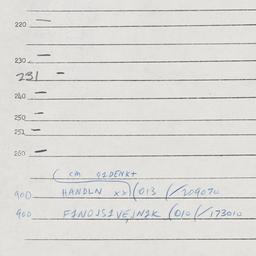 220 —
230 —
231 —
240 —
250 —
251 —
260 —
( cm
900 HANDLN xs) (013 (/209070
900 (010 (/173010